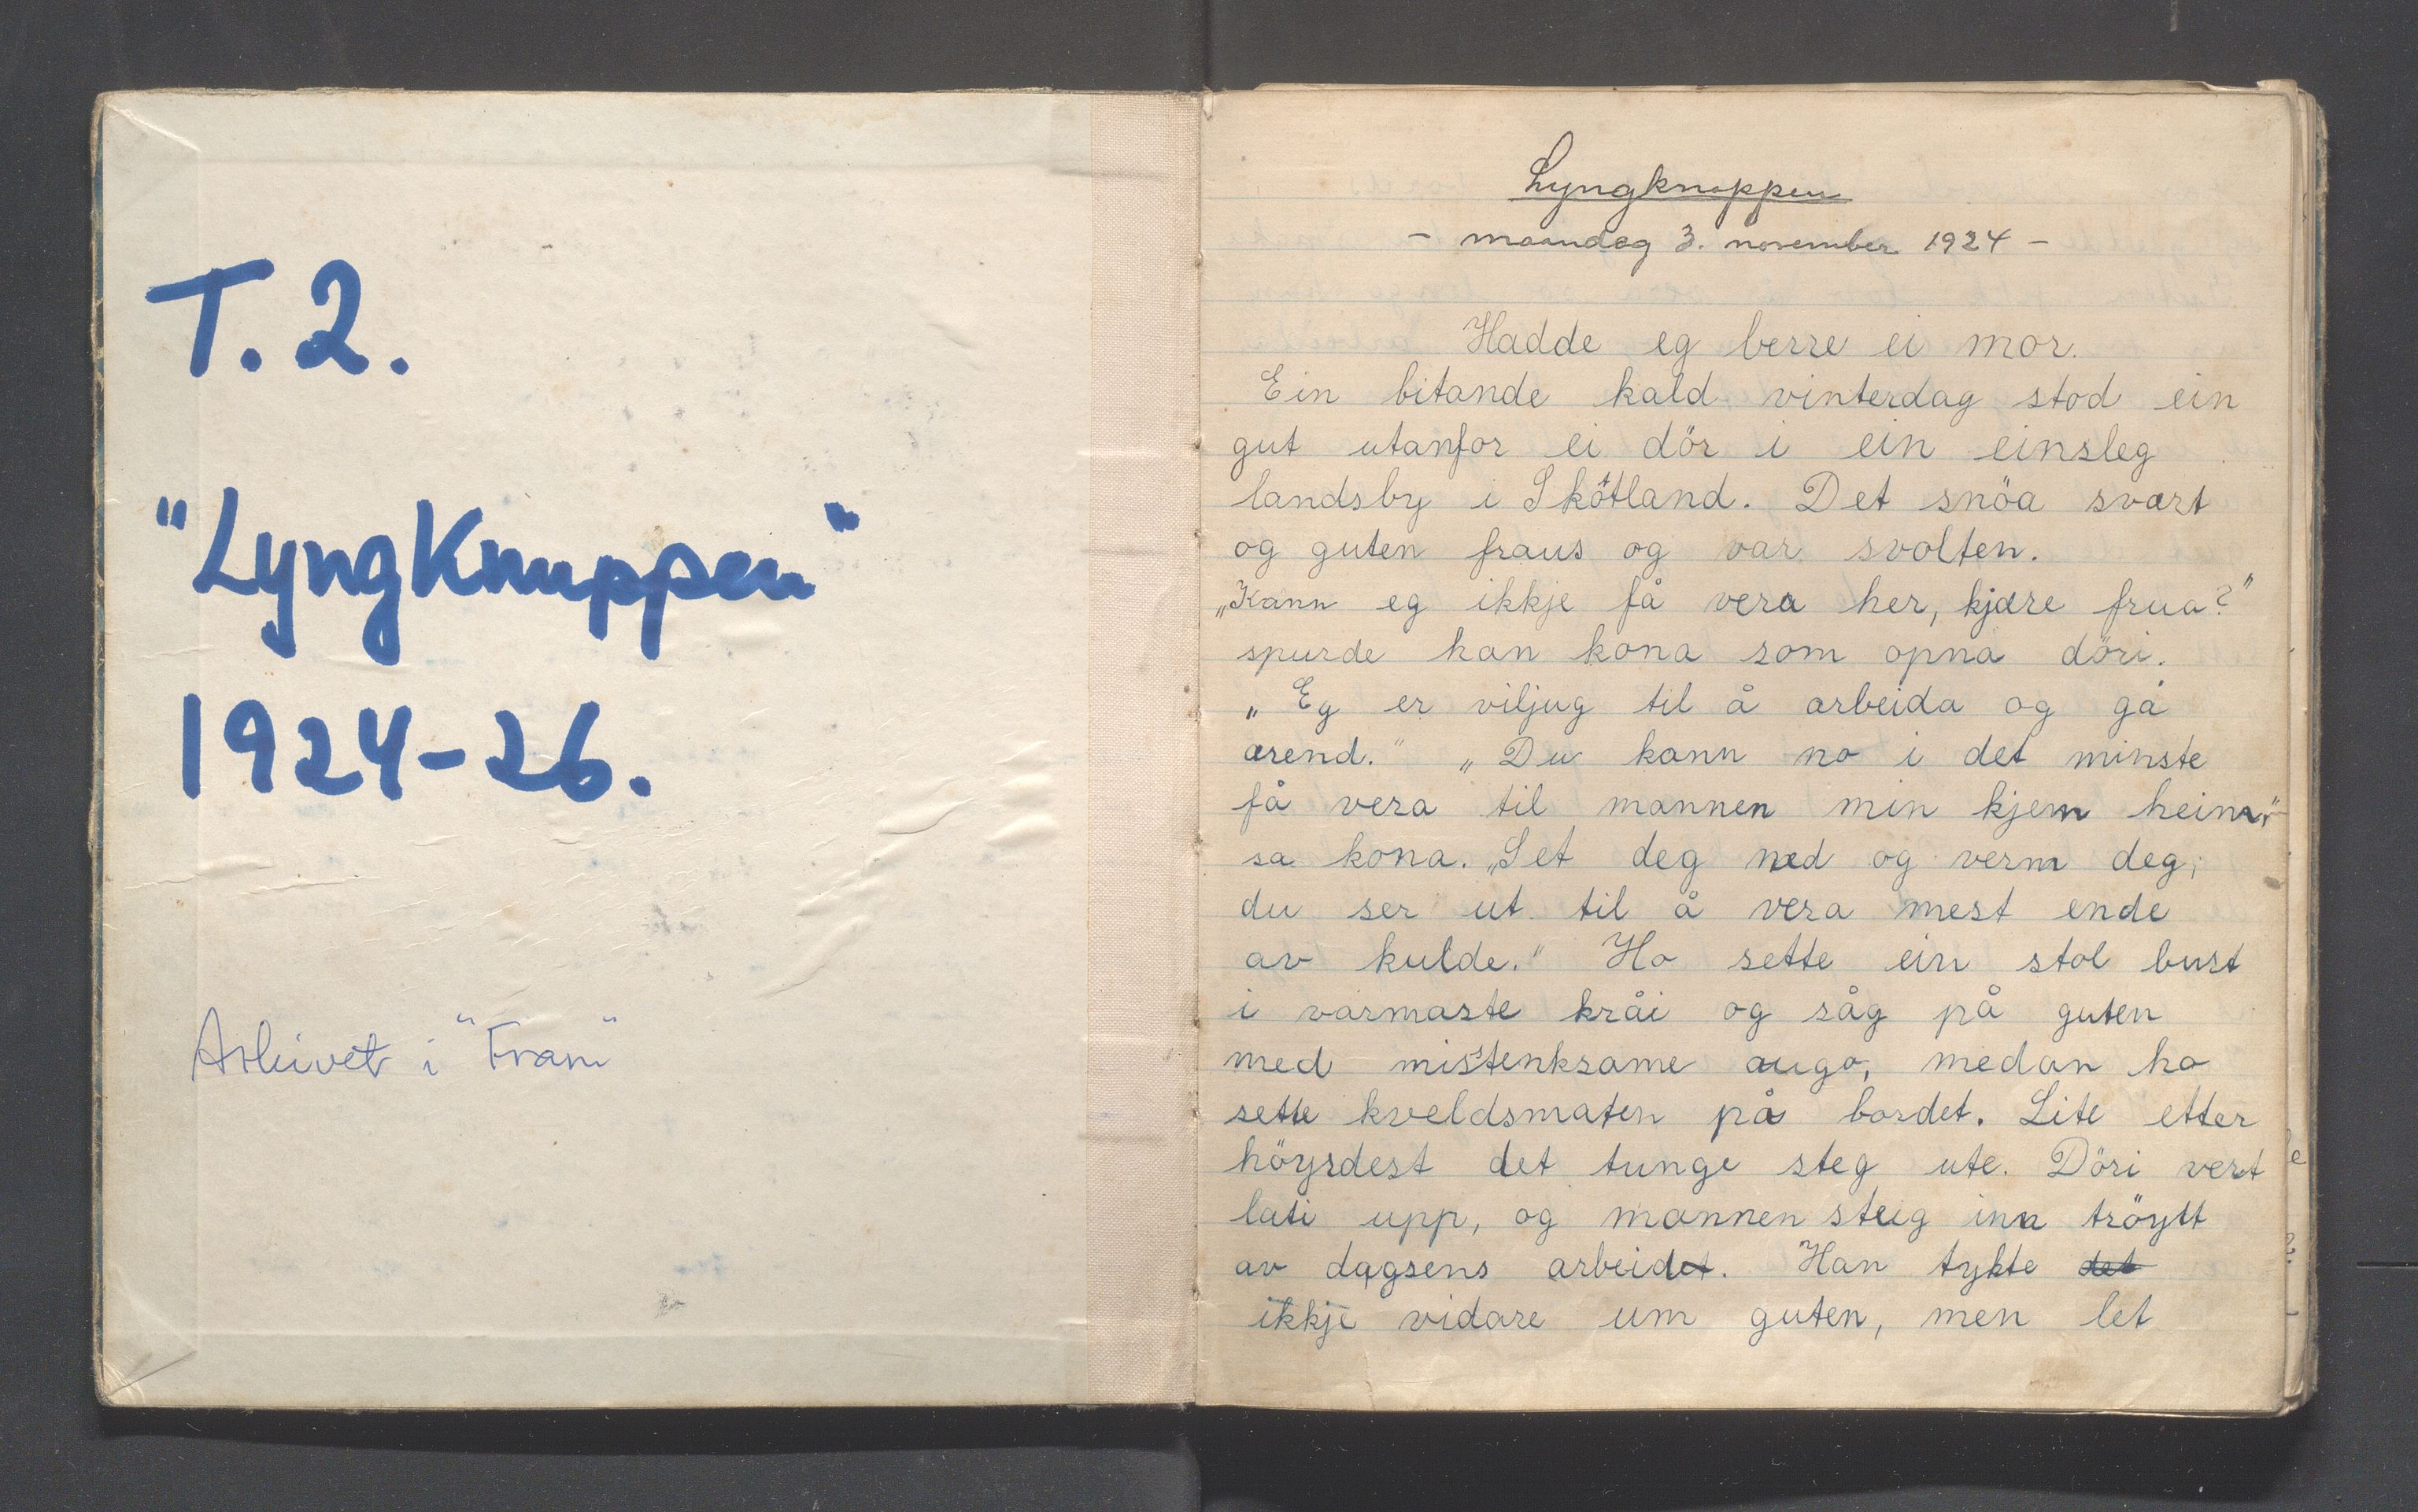 T. 2.
"LyngKnuppen"
1924-26.
Arkivet i "Fram"
Lyngknuppen
- maandag 3. november 1924 -
Hadde eg berre ei mor.
Ein bitande kald vinterdag stod ein
gut utanfor ei dör i ein einsleg
landsby i Skottland. Det snöa svært
og guten fraus og var svolten.
„Kann eg ikkje få vera her, kjære frua?"
spurde han kona som opna döri.
„Eg er viljug til å arbeida og gå
ærend." „Du kann no i det minste
få vera til mannen min kjem heim,"
sa kona. „Set deg ned og verm deg,
du ser ut til å vera mest ende
av kulde." Ho sette ein stol burt
i varmaste kråi og såg på guten
med mistenksame augo, medan ho
sette kveldsmaten på bordet. Lite etter
höyrdest det tunge steg ute. Döri vert
lati upp, og mannen steig inn tröytt
av dagsens arbeidet. Han tykte det
ikkje vidare um guten, men let